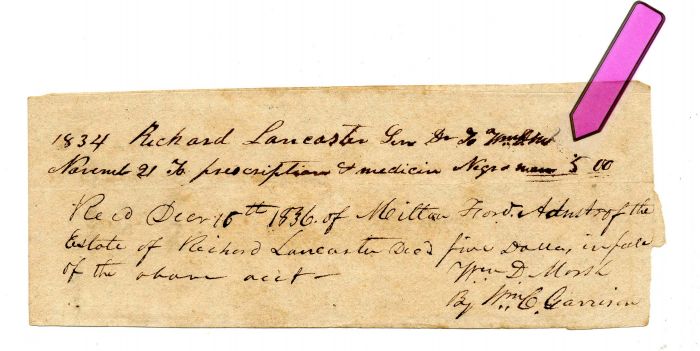 1834 Richard Lancaster Senr Dr To
Novemb 21 To prescription & medicin Negro man 5 00
Recd Decr 15th 1836 of Milton Ford Admstr of the
Estate of Richard Lancaster Decd five Dollars in full
of the above acct -
Wm D. Marsh
By Wm C. Garrison